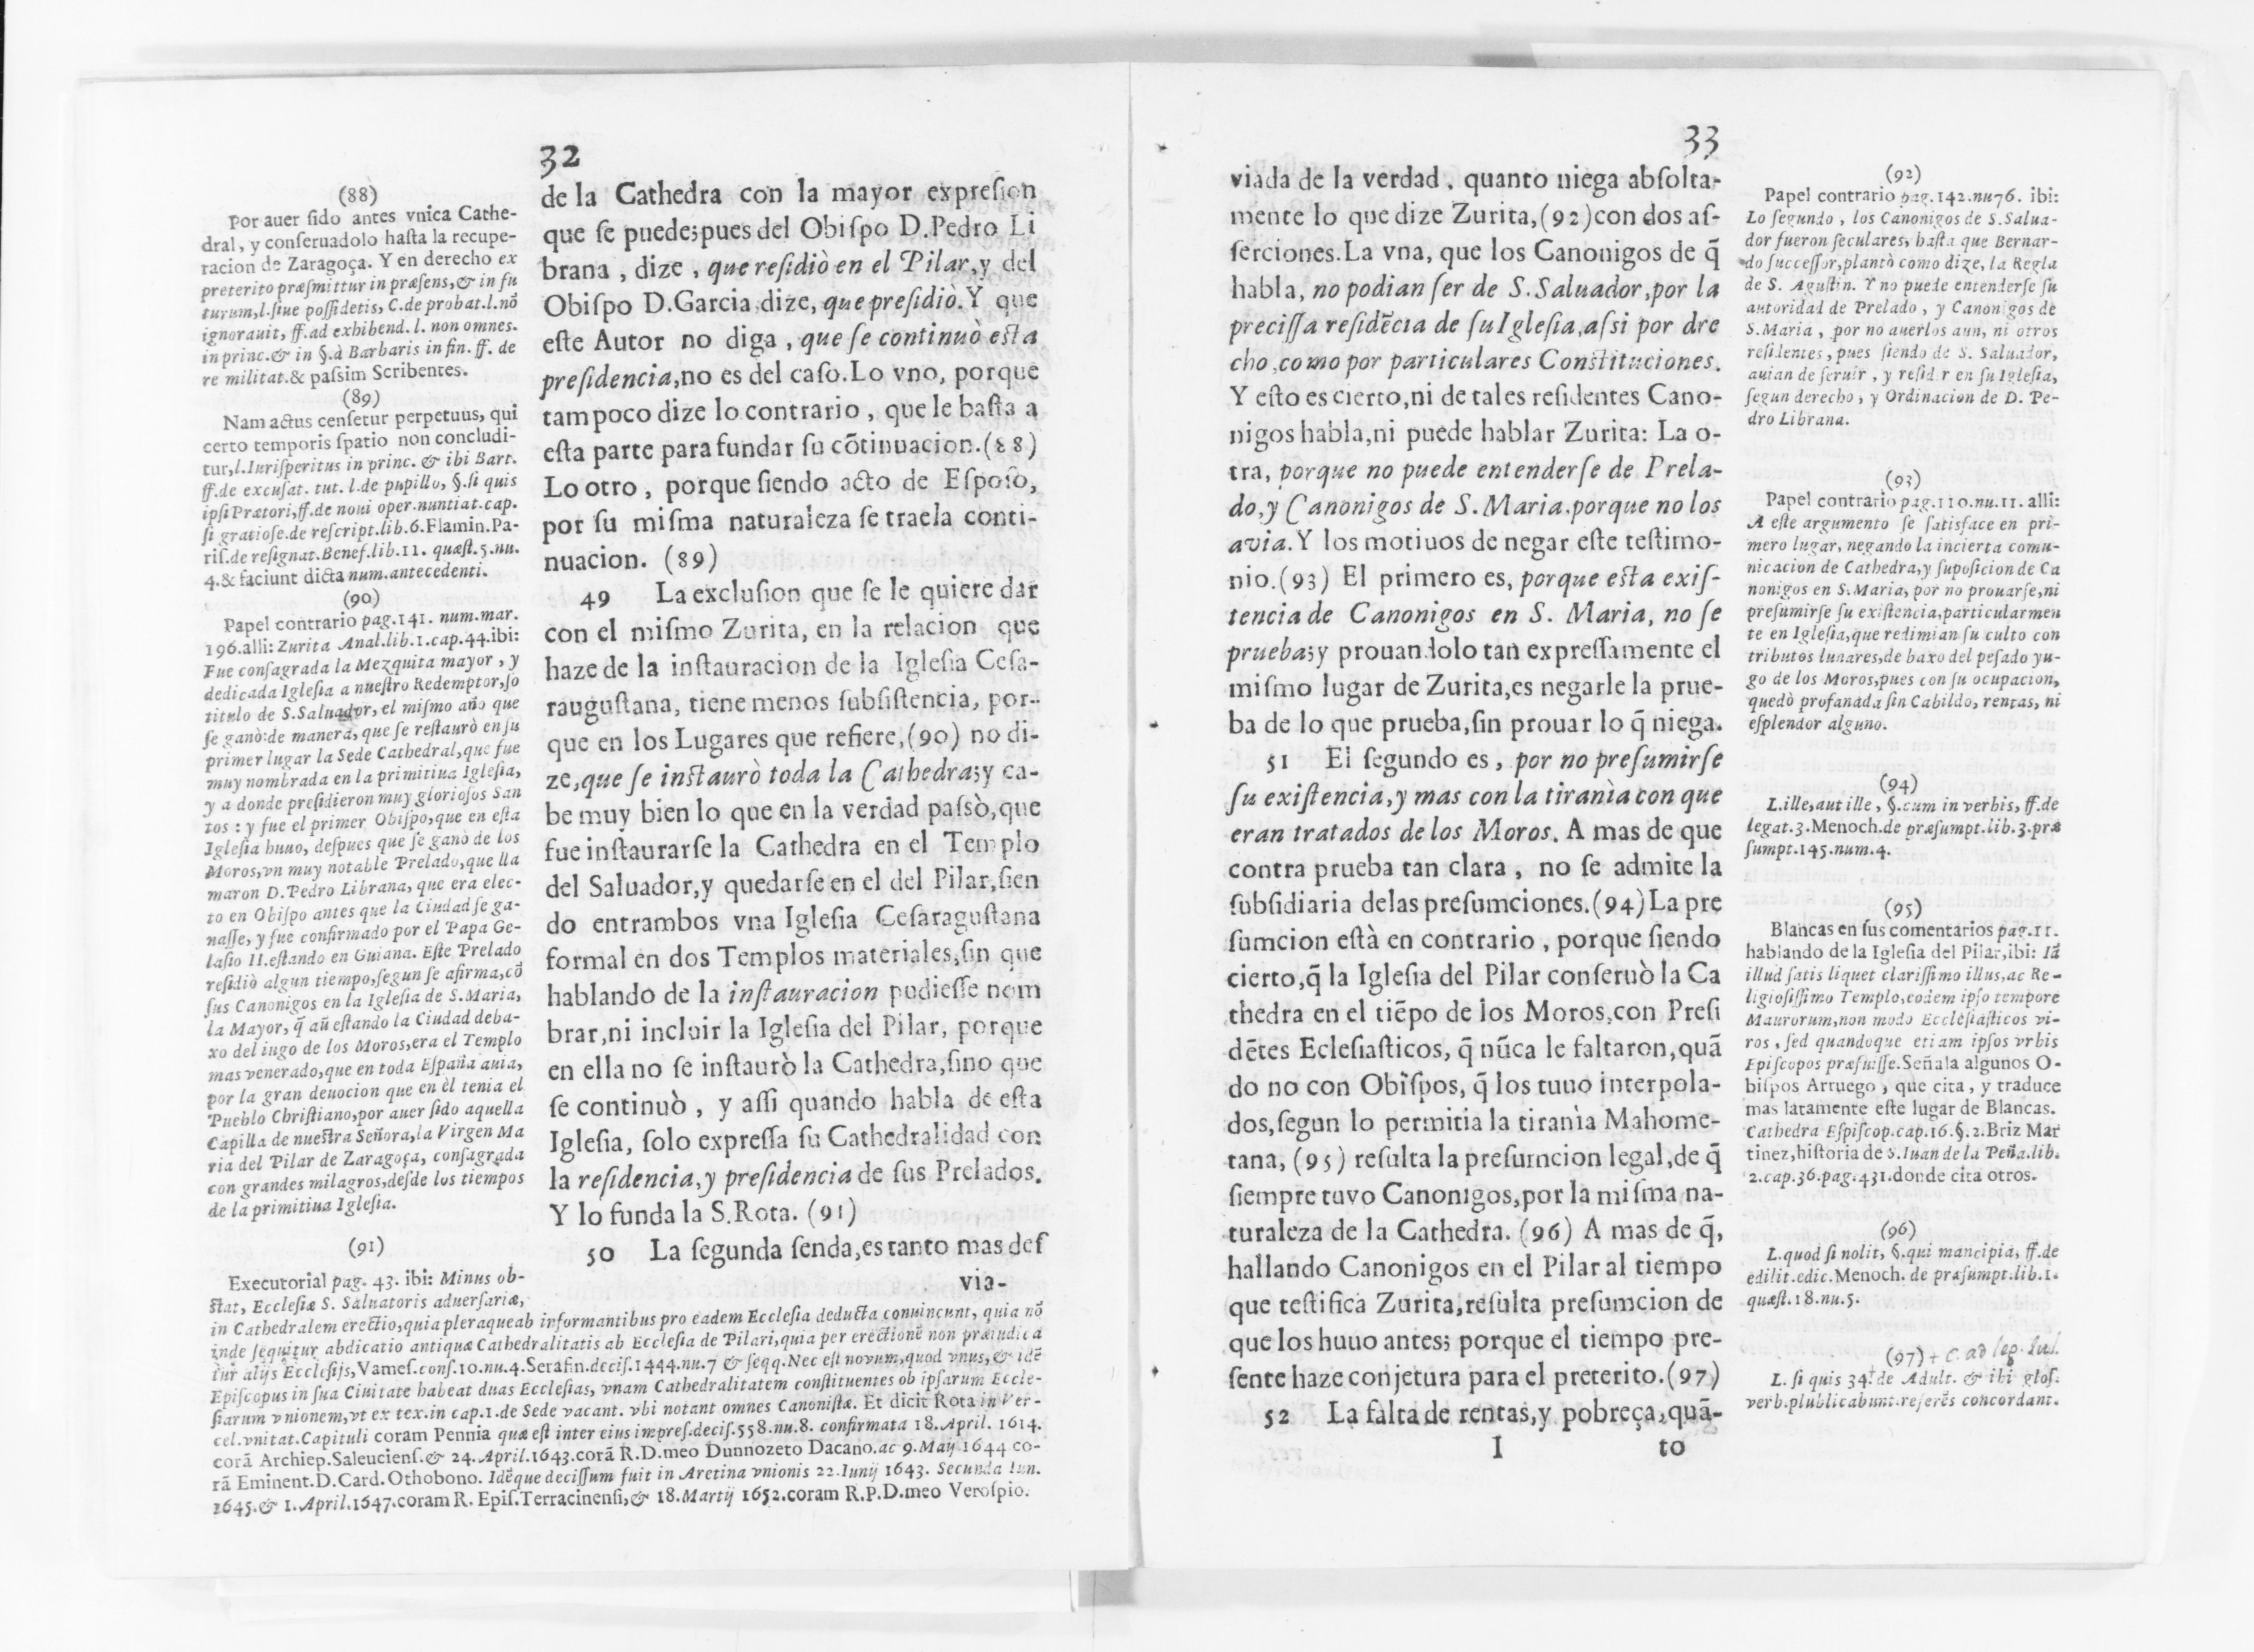 32
de la Cathedra con la mayor expreſion
que ſe puede;pues del Obiſpo D.Pedro Li
brana , dize , que reſidiò en el Pilar,y del
Obiſpo D.Garcia,dize, que preſidiò.Y que
eſte Autor no diga , que ſe continuò eſta
preſidencia,no es del caſo.Lo vno, porque
tampoco dize lo contrario , que le baſta a
eſta parte para fundar ſu cõtinuacion.(88)
Lo otro , porque ſiendo acto de Eſpoſo,
por ſu miſma naturaleza ſe traela conti-
nuacion. (89)
49 La excluſion que ſe le quiere dar
con el miſmo Zurita, en la relacion que
haze de la inſtauracion de la Igleſia Ceſa-
rauguſtana, tiene menos ſubſiſtencia, por-
que en los Lugares que refiere,(90) no di-
ze,que ſe inſtaurò toda la Cathedra;y ca-
be muy bien lo que en la verdad paſsò,que
fue inſtaurarſe la Cathedra en el Templo
del Saluador,y quedarſe en el del Pilar,ſien
do entrambos vna Igleſia Ceſaraguſtana
formal en dos Templos materiales,ſin que
hablando de la inſtauracion pudieſſe nom
brar,ni incluir la Igleſia del Pilar, porque
en ella no ſe inſtaurò la Cathedra,ſino que
ſe continuò , y aſſi quando habla de eſta
Igleſia, ſolo expreſſa ſu Cathedralidad con
la reſidencia,y preſidencia de ſus Prelados.
Y lo funda la S.Rota. (91)
50 La ſegunda ſenda,es tanto mas deſ
via-
(88)
Por auer ſido antes vnica Cathe-
dral, y conſeruadolo haſta la recupe-
racion de Zaragoça. Y en derecho ex
preterito præſmittur in præſens,& in fu
turum,l.ſiue poſſidetis, C.de probat.l.nõ
ignorauit, ff.ad exhibend. l. non omnes.
in princ.& in §.à Barbaris in fin. ff. de
re militat.& paſsim Scribentes.
(89)
Nam actus cenſetur perpetuus, qui
certo temporis ſpatio non concludi-
tur,l.Iuriſperitus in princ. & ibi Bart.
ff.de excuſat. tut. l.de pupillo, §.ſi quis
ipſi Prætori,ff.de noui oper.nuntiat.cap.
ſi gratioſe.de reſcript.lib.6.Flamin.Pa-
riſ.de reſignat.Beneſ.lib.11. quæſt.5.nu.
4.& faciunt dicta num.antecedenti.
(90)
Papel contrario pag.141. num.mar.
196.alli: Zurita Anal.lib.1.cap.44.ibi:
Fue conſagrada la Mezquita mayor , y
dedicada Igleſia a nueſtro Redemptor,ſo
titulo de S.Saluador, el miſmo año que
ſe ganò:de manera, que ſe reſtaurò en ſu
primer lugar la Sede Cathedral,que fue
muy nombrada en la primitiua Igleſia,
y a donde preſidieron muy glorioſos San
tos : y fue el primer Obiſpo,que en eſta
Igleſia huuo, deſpues que ſe ganò de los
Moros,vn muy notable Prelado,que lla
maron D.Pedro Librana, que era elec-
to en Obiſpo antes que la Ciudad ſe ga-
naſſe, y fue confirmado por el Papa Ge-
laſio II.eſtando en Guiana. Eſte Prelado
reſidiò algun tiempo,ſegun ſe afirma,cõ
ſus Canonigos en la Igleſia de S.Maria,
la Mayor, q̃ aũ eſtando la Ciudad deba-
xo del iugo de los Moros,era el Templo
mas venerado,que en toda Eſpaña auia,
por la gran deuocion que en èl tenia el
Pueblo Chriſtiano,por auer ſido aquella
Capilla de nueſtra Señora,la Virgen Ma
ria del Pilar de Zaragoça, conſagrada
con grandes milagros,deſde los tiempos
de la primitiua Igleſia.
(91)
Executorial pag. 43. ibi: Minus ob-
ſtat, Eccleſiæ S. Saluatoris aduerſariæ,
in Cathedralem erectio,quia pleraque ab informantibus pro eadem Eccleſia deducta conuincunt, quia nõ
inde ſequitur abdicatio antiquæ Cathedralitatis ab Eccleſia de Pilari,quia per erectionẽ non præiudica
tur alijs Eccleſijs,Vameſ.conſ.10.nu.4.Serafin.deciſ.1444.nu.7 & ſeqq.Nec eſt novum,quod vnus,& idẽ
Epiſcopus in ſua Ciuitate habeat duas Eccleſias, vnam Cathedralitatem conſtituentes ob ipſarum Eccle-
ſiarum vnionem,vt ex tex.in cap.1.de Sede vacant. vbi notant omnes Canoniſtæ. Et dicit Rota in Ver-
cel.vnitat.Capituli coram Pennia quæ eſt inter eius impreſ.deciſ.558.nu.8. confirmata 18.April. 1614.
corã Archiep.Saleucienſ.& 24.April.1643.corã R.D.meo Dunnozeto Dacano.ac 9.Maij 1644 co-
rã Eminent.D.Card.Othobono. Idẽque deciſſum fuit in Aretina vnionis 22.Iunij 1643. Secunda Iun.
1645.& 1.April.1647.coram R. Epiſ.Terracinenſi,& 18.Martij 1652.coram R.P.D.meo Veroſpio.
33
viada de la verdad , quanto niega abſolta-
mente lo que dize Zurita,(92)con dos aſ-
ſerciones.La vna, que los Canonigos de q̃
habla, no podian ſer de S.Saluador,por la
preciſſa reſidẽcia de ſu Igleſia,aſsi por dre
cho,como por particulares Conſtituciones.
Y eſto es cierto,ni de tales reſidentes Cano-
nigos habla,ni puede hablar Zurita: La o-
tra, porque no puede entenderſe de Prela-
do,y Canonigos de S.Maria.porque no los
avia.Y los motiuos de negar eſte teſtimo-
nio.(93) El primero es, porque eſta exiſ-
tencia de Canonigos en S. Maria, no ſe
prueba;y prouandolo tan expreſſamente el
miſmo lugar de Zurita,es negarle la prue-
ba de lo que prueba,ſin prouar lo q̃ niega.
51 El ſegundo es , por no preſumirſe
ſu exiſtencia,y mas con la tirania con que
eran tratados de los Moros. A mas de que
contra prueba tan clara , no ſe admite la
ſubſidiaria delas preſumciones.(94)La pre
ſumcion eſtà en contrario , porque ſiendo
cierto,q̃ la Igleſia del Pilar conſeruò la Ca
thedra en el tiẽpo de los Moros,con Preſi
dẽtes Ecleſiaſticos, q̃ nũca le faltaron,quã
do no con Obiſpos, q̃ los tuuo interpola-
dos,ſegun lo permitia la tirania Mahome-
tana, (95) reſulta la preſumcion legal,de q̃
ſiempre tuvo Canonigos,por la miſma na-
turaleza de la Cathedra. (96) A mas de q̃,
hallando Canonigos en el Pilar al tiempo
que teſtifica Zurita,reſulta preſumcion de
que los huuo antes; porque el tiempo pre-
ſente haze conjetura para el preterito.(97)
52 La falta de rentas,y pobreça,quã-
I to
(92)
Papel contrario pag.142.nu76. ibi:
Lo ſegundo , los Canonigos de S.Salua-
dor fueron ſeculares, haſta que Bernar-
do ſucceſſor,plantò como dize, la Regla
de S. Aguſtin. Y no puede entenderſe ſu
autoridad de Prelado , y Canonigos de
S.Maria , por no auerlos aun, ni otros
reſidentes, pues ſiendo de S. Saluador,
auian de ſeruir , y reſidir en ſu Igleſia,
ſegun derecho , y Ordinacion de D. Pe-
dro Librana.
(93)
Papel contrario pag.110.nu.11. alli:
A eſte argumento ſe ſatisface en pri-
mero lugar, negando la incierta comu-
nicacion de Cathedra,y ſupoſicion de Ca
nonigos en S.Maria, por no prouarſe,ni
preſumirſe ſu exiſtencia,particularmen
te en Igleſia,que redimian ſu culto con
tributos lunares,de baxo del peſado yu-
go de los Moros,pues con ſu ocupacion,
quedò profanada ſin Cabildo, rentas, ni
eſplendor alguno.
(94)
L.ille,aut ille , §.cum in verbis, ff.de
legat.3.Menoch.de præſumpt.lib.3.præ
ſumpt.145.num.4.
(95)
Blancas en ſus comentarios pag.11.
hablando de la Igleſia del Pilar,ibi: Iã
illud ſatis liquet clariſſimo illus,ac Re-
ligioſiſſimo Templo,eodem ipſo tempore
Maurorum,non modo Eccleſiaſticos vi-
ros , ſed quandoque etiam ipſos vrbis
Epiſcopos præfuiſſe.Señala algunos O-
biſpos Arruego , que cita , y traduce
mas latamente eſte lugar de Blancas.
Cathedra Eſpiſcop.cap.16.§.2.Briz Mar
tinez,hiſtoria de S.Iuan de la Peña.lib.
2.cap.36.pag.431.donde cita otros.
(96)
L.quod ſi nolit, §.qui mancipia, ff.de
edilit.edic.Menoch. de præſumpt.lib.1.
quæſt.18.nu.5.
(97) + C. ad leg. Jul.
L. ſi quis 34.† de Adult. & ibi gloſ.
verb.plublicabunt.referẽs concordant.